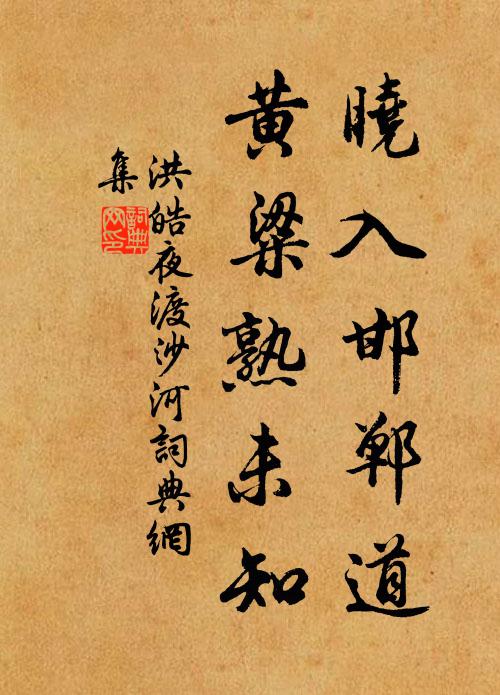 曉入邯鄲道
黄粱熟未知
洪皓夜渡沙河詞典網
集
詞典
网印